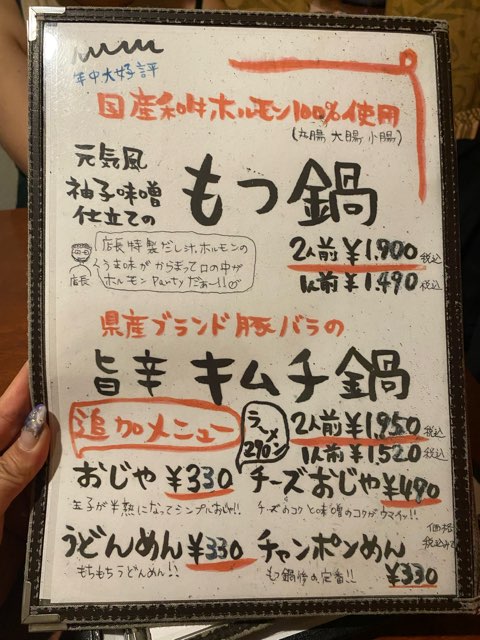 年中大好評
国産和牛ホルモン100%使用
(丸腸 大腸 小腸)
元気風
柚子味噌
仕立ての
もつ鍋
店長特製だし汁、ホルモンの
うま味がからまって口の中が
ホルモンPartyだぁ〜!!♡
店長
2人前¥1,900税込
1人前¥1,490税込
県産ブランド豚バラの
旨辛キムチ鍋
追加メニュー
ラーメン
290
2人前¥1,950税込
1人前¥1,520税込
おじや¥330
玉子が半熟になってシンプルおじや!!
チーズおじや¥490
チーズのコクと味噌のコクがウマイッ!!
うどんめん¥330
もちもちうどんめん!!
チャンポンめん
¥330
もつ鍋後の定番!!
価格
税込み